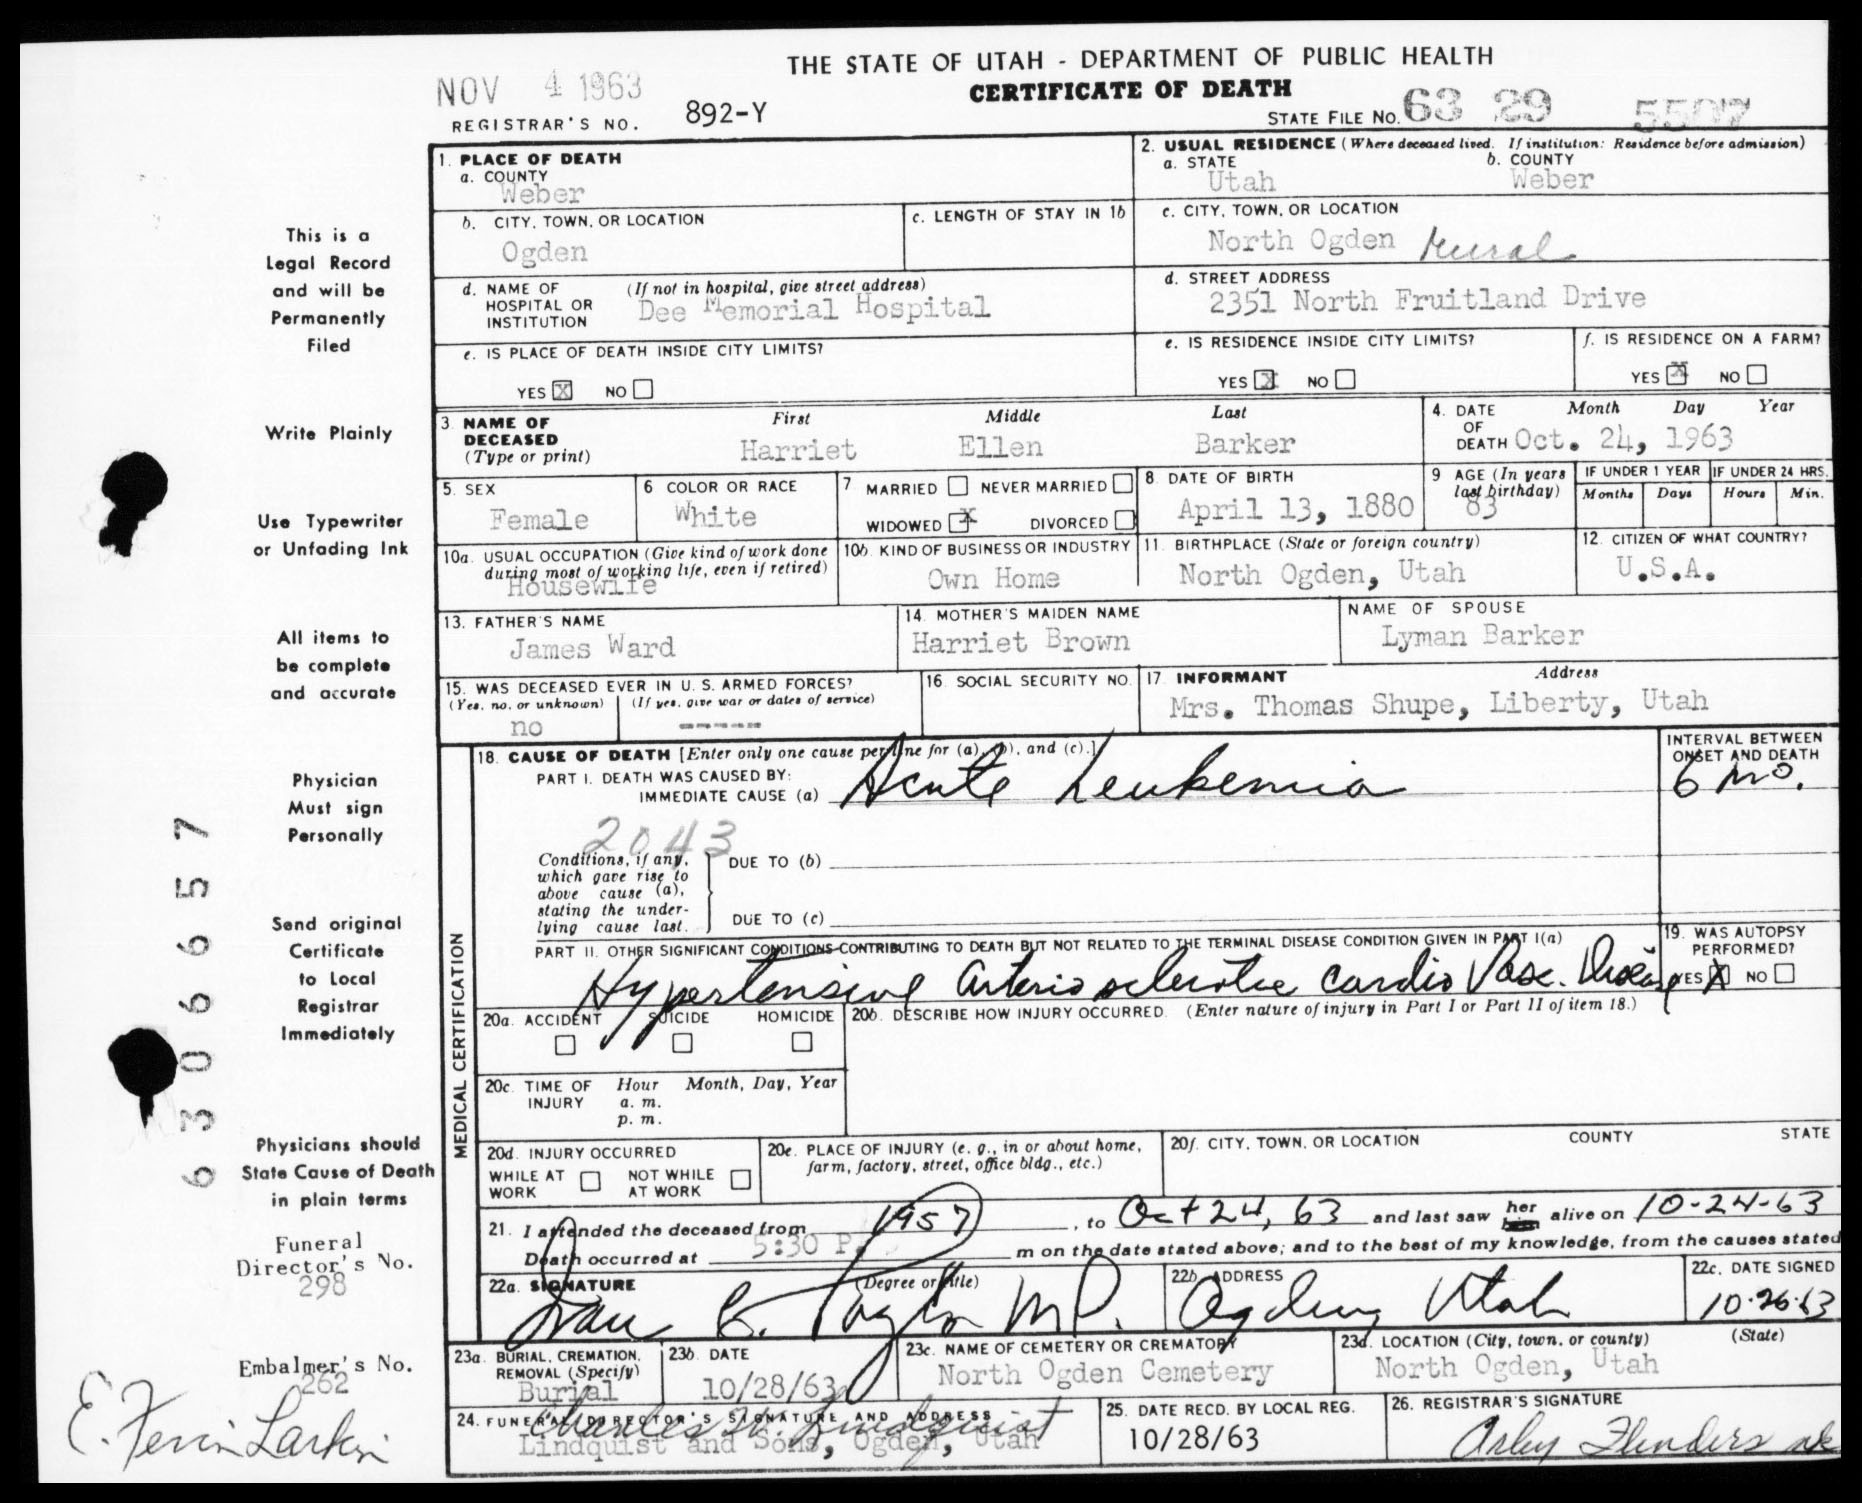 THE STATE OF UTAH - DEPARTMENT OF PUBLIC HEALTH
CERTIFICATE OF DEATH
NOV 4 1963
REGISTRAR'S NO. 892-Y
STATE FILE NO. 63 29 5507
1. PLACE OF DEATH
a. COUNTY
Weber
2. USUAL RESIDENCE (Where deceased lived. If institution: Residence before admission)
a. STATE b. COUNTY
Utah Weber
b. CITY, TOWN, OR LOCATION
Ogden
c. LENGTH OF STAY IN 1b
c. CITY, TOWN, OR LOCATION
North Ogden rural
d. NAME OF HOSPITAL OR INSTITUTION (If not in hospital, give street address)
Dee Memorial Hospital
d. STREET ADDRESS
2351 North Fruitland Drive
e. IS PLACE OF DEATH INSIDE CITY LIMITS?
YES X NO
e. IS RESIDENCE INSIDE CITY LIMITS?
YES X NO
f. IS RESIDENCE ON A FARM?
YES X NO
3. NAME OF DECEASED (Type or print)
First Middle Last
Harriet Ellen Barker
4. DATE OF DEATH Month Day Year
Oct. 24, 1963
5. SEX
Female
6 COLOR OR RACE
White
7 MARRIED NEVER MARRIED
WIDOWED X DIVORCED
8. DATE OF BIRTH
April 13, 1880
9 AGE (In years last birthday)
83
IF UNDER 1 YEAR IF UNDER 24 HRS.
Months Days Hours Min.
10a. USUAL OCCUPATION (Give kind of work done during most of working life, even if retired)
Housewife
10b. KIND OF BUSINESS OR INDUSTRY
Own Home
11. BIRTHPLACE (State or foreign country)
North Ogden, Utah
12. CITIZEN OF WHAT COUNTRY?
U.S.A.
13. FATHER'S NAME
James Ward
14. MOTHER'S MAIDEN NAME
Harriet Brown
NAME OF SPOUSE
Lyman Barker
15. WAS DECEASED EVER IN U. S. ARMED FORCES?
(Yes, no, or unknown) (If yes, give war or dates of service)
no ------
16. SOCIAL SECURITY NO.
17. INFORMANT Address
Mrs. Thomas Shupe, Liberty, Utah
18. CAUSE OF DEATH [Enter only one cause per line for (a), (b), and (c).]
PART I. DEATH WAS CAUSED BY:
IMMEDIATE CAUSE (a) Acute Leukemia
INTERVAL BETWEEN ONSET AND DEATH
6 mo.
2043
Conditions, if any, which gave rise to above cause (a), stating the underlying cause last.
DUE TO (b)
DUE TO (c)
PART II. OTHER SIGNIFICANT CONDITIONS CONTRIBUTING TO DEATH BUT NOT RELATED TO THE TERMINAL DISEASE CONDITION GIVEN IN PART I(a)
Hypertensive arterio sclerotic cardio Vasc. Disease
19. WAS AUTOPSY PERFORMED?
YES X NO
20a. ACCIDENT SUICIDE HOMICIDE
20b. DESCRIBE HOW INJURY OCCURRED. (Enter nature of injury in Part I or Part II of item 18.)
20c. TIME OF INJURY Hour Month, Day, Year
a. m.
p. m.
20d. INJURY OCCURRED
WHILE AT WORK NOT WHILE AT WORK
20e. PLACE OF INJURY (e. g., in or about home, farm, factory, street, office bldg., etc.)
20f. CITY, TOWN, OR LOCATION COUNTY STATE
21. I attended the deceased from 1957, to Oct 24, 63 and last saw her him alive on 10-24-63
Death occurred at 5:30 P. m on the date stated above; and to the best of my knowledge, from the causes stated
22a. SIGNATURE (Degree or title)
Taylor MD.
22b. ADDRESS
Ogden, Utah
22c. DATE SIGNED
10-26-63
23a. BURIAL, CREMATION, REMOVAL (Specify)
Burial
23b. DATE
10/28/63
23c. NAME OF CEMETERY OR CREMATORY
North Ogden Cemetery
23d. LOCATION (City, town, or county) (State)
North Ogden, Utah
24. FUNERAL DIRECTOR'S SIGNATURE AND ADDRESS
Charles W. Lindquist
Lindquist and Sons, Ogden, Utah
25. DATE RECD. BY LOCAL REG.
10/28/63
26. REGISTRAR'S SIGNATURE
Arley Flinders
MEDICAL CERTIFICATION
This is a
Legal Record
and will be
Permanently
Filed
Write Plainly
Use Typewriter
or Unfading Ink
All items to
be complete
and accurate
Physician
Must sign
Personally
Send original
Certificate
to Local
Registrar
Immediately
Physicians should
State Cause of Death
in plain terms
Funeral
Director's No.
298
Embalmer's No.
262
E. Fervin Larkin
6306657